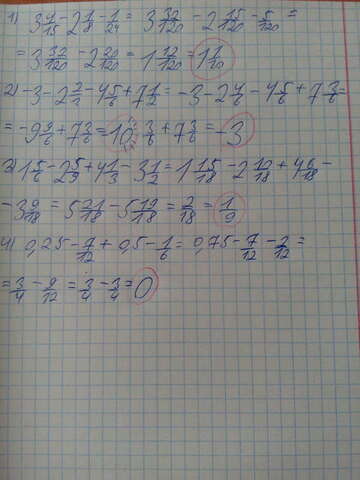 1) 3 4/15 - 2 1/8 - 1/24 = 3 32/120 - 2 15/120 - 5/120 =
= 3 32/120 - 2 20/120 = 1 12/120 = 1 1/10
2) -3 - 2 2/3 - 4 5/6 + 7 1/2 = -3 - 2 4/6 - 4 5/6 + 7 3/6 =
= -9 9/6 + 7 3/6 = 10 3/6 + 7 3/6 = -3
3) 1 5/6 - 2 5/9 + 4 1/3 - 3 1/2 = 1 15/18 - 2 10/18 + 4 6/18 -
- 3 9/18 = 5 21/18 - 5 19/18 = 2/18 = 1/9
4) 0,25 - 7/12 + 0,5 - 1/6 = 0,75 - 7/12 - 2/12 =
= 3/4 - 9/12 = 3/4 - 3/4 = 0